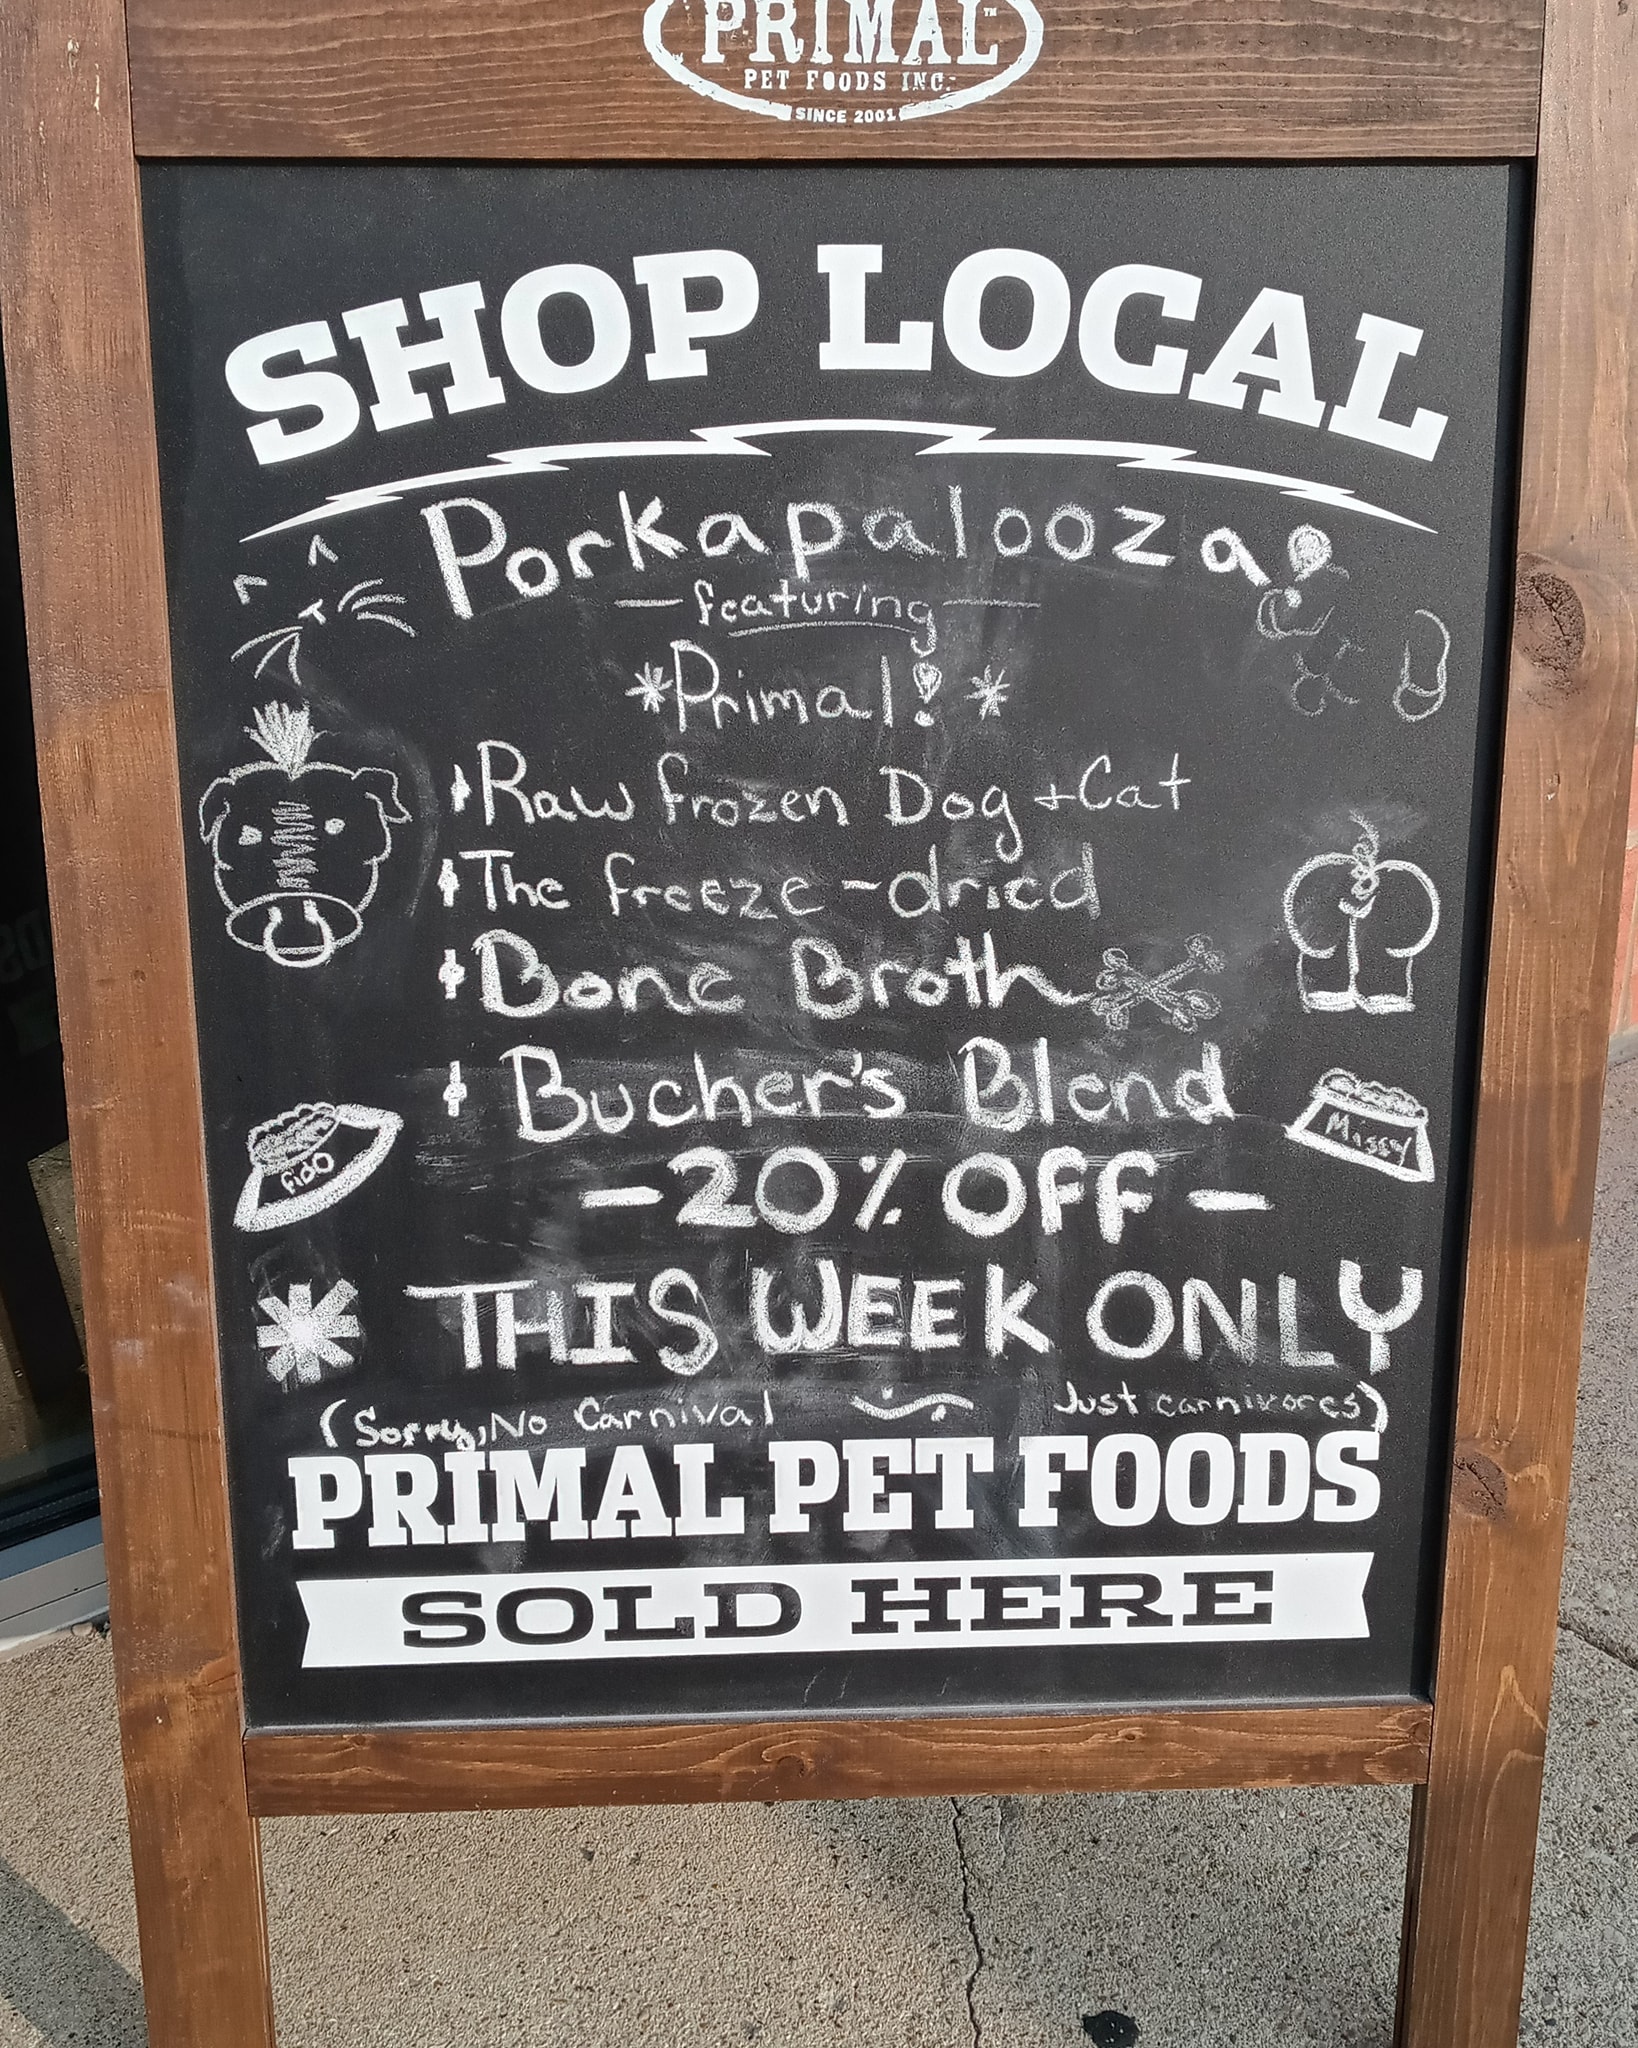 PRIMAL™
PET FOODS INC.
SINCE 2001
SHOP LOCAL
Porkapalooza!
- featuring -
*Primal! *
Raw frozen Dog + Cat
The freeze-dried
Bone Broth
Bucher's Blend
fido
Missy
- 20% OFF -
* THIS WEEK ONLY
(Sorry, No Carnival Just carnivores)
PRIMAL PET FOODS
SOLD HERE